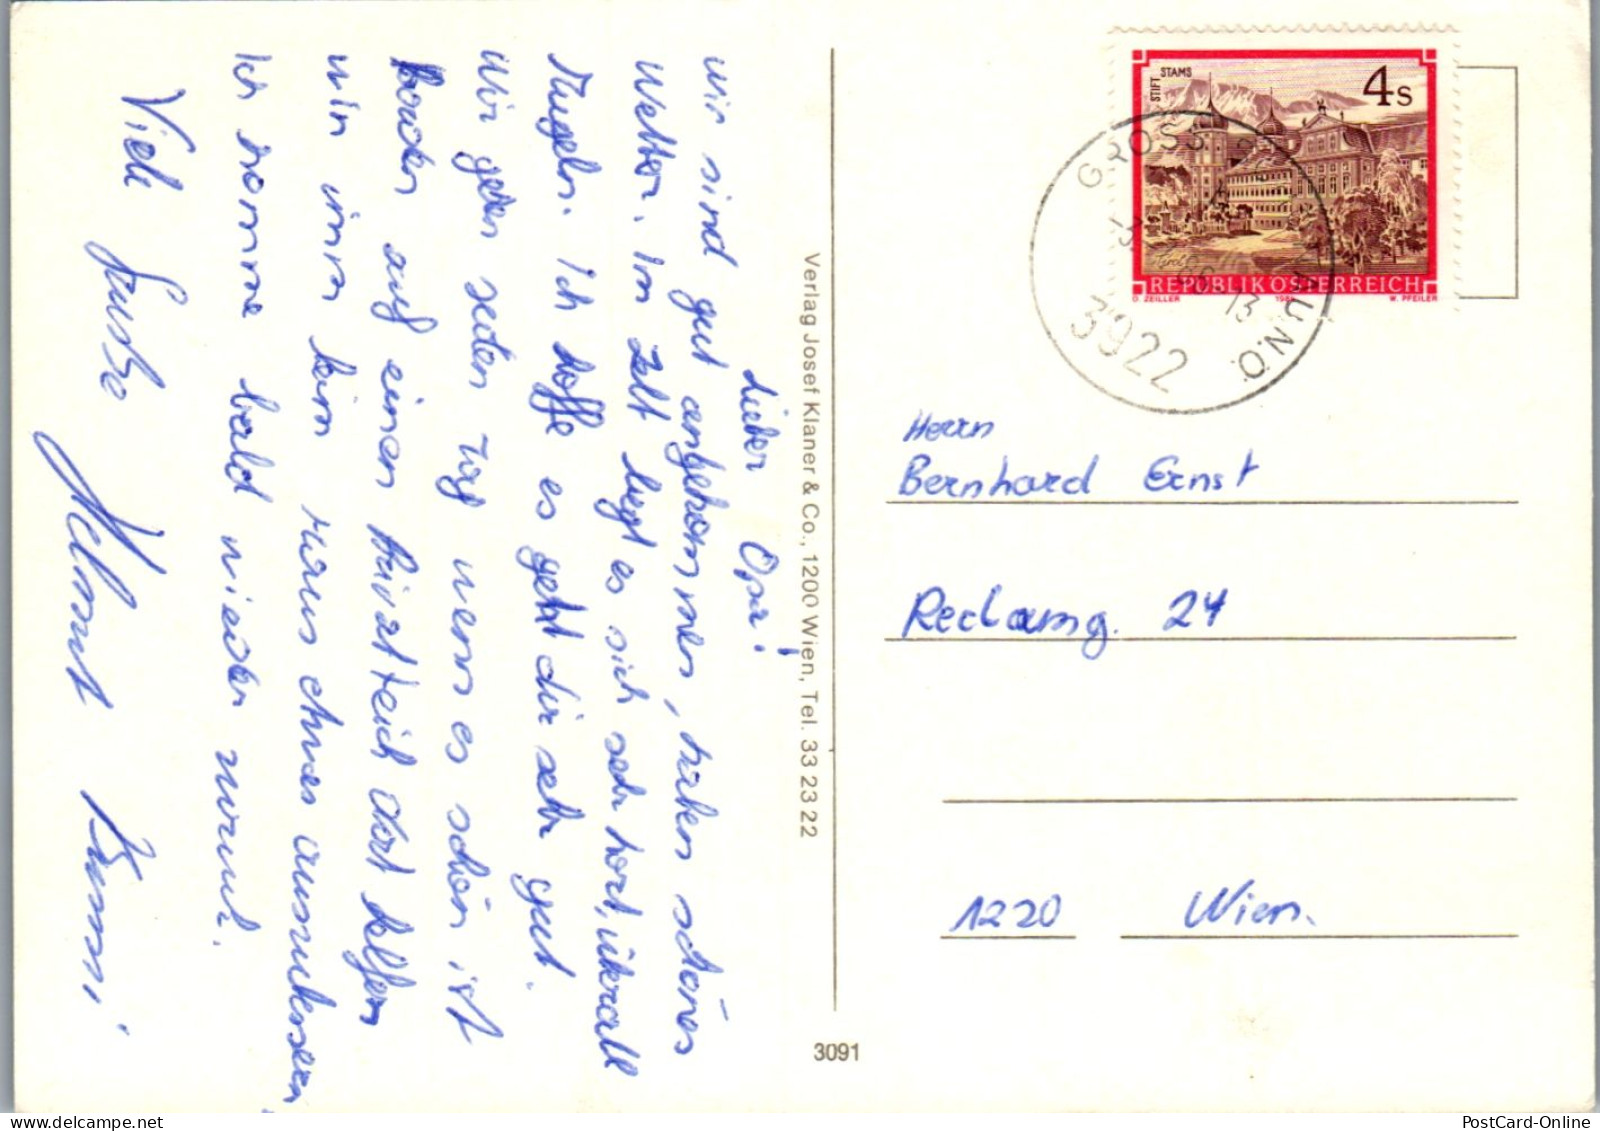 Lieber Opa!
wir sind gut angekommen, haben schönes
Wetter. Im Zelt liegt es sich sehr hart, überall
Mugeln. Ich hoffe es geht dir sehr gut.
Wir gehen jeden Tag wenn es schön ist
baden auf einen Privatteich dort helfen
wir ihm beim raus
Ich komme bald wieder zurück.
Viele Grüße Helmut
Verlag Josef Klaner & Co., 1200 Wien, Tel. 33 23 22
3091
STIFT STAMS
4s
REPUBLIK ÖSTERREICH
O. ZEILLER
W. PFEILER
GROSS
3922
13
Herrn
Bernhard Ernst
24
1220 Wien.
PostCard-Online